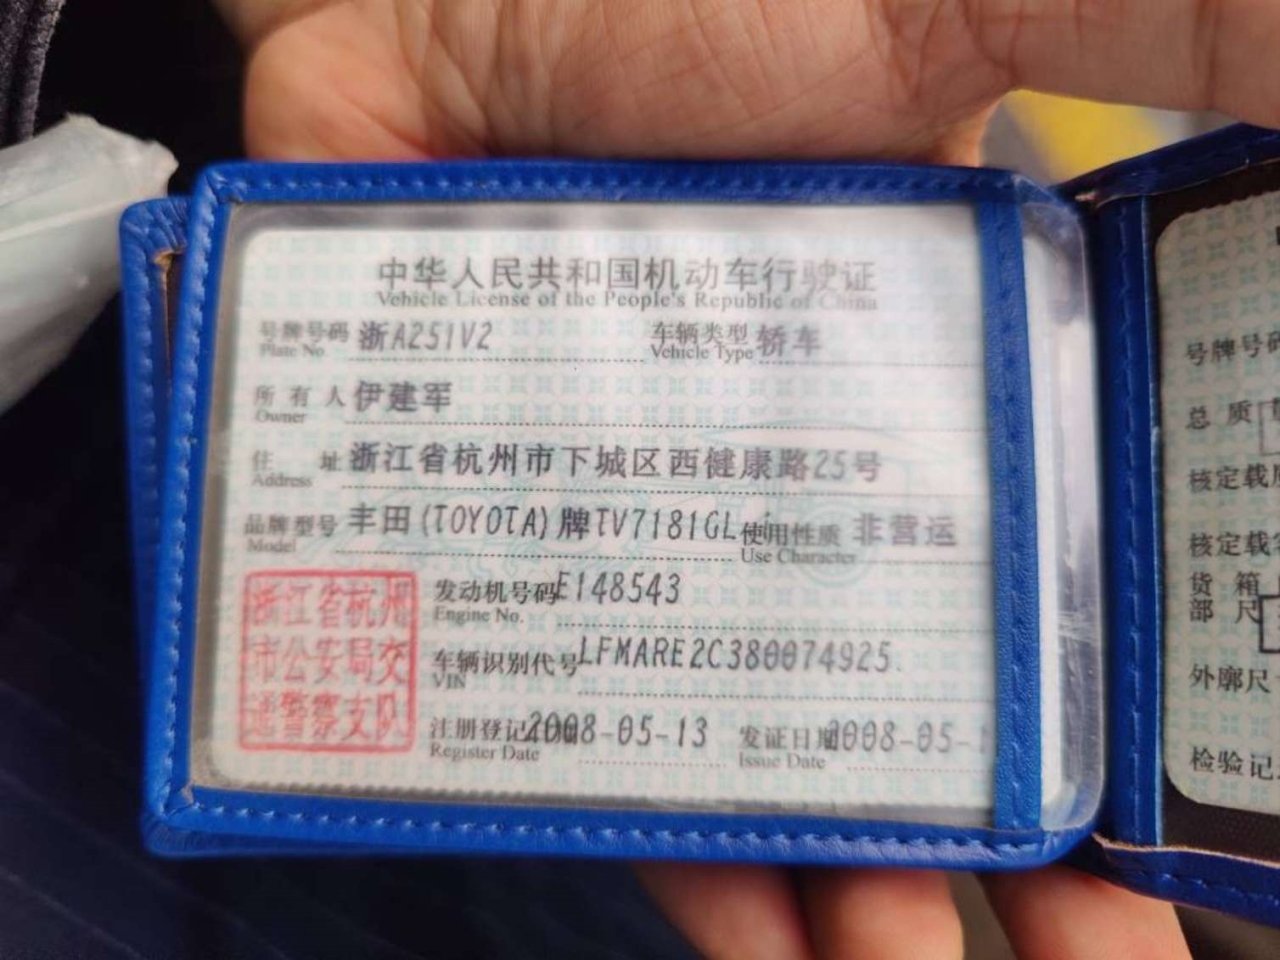 中华人民共和国机动车行驶证
Vehicle License of the People's Republic of China
号牌号码 浙A251V2 车辆类型 轿车
Plate No. Vehicle Type
所有人 伊建军
Owner
住址 浙江省杭州市下城区西健康路25号
Address
品牌型号 丰田(TOYOTA)牌TV7181GL 使用性质 非营运
Model Use Character
发动机号码 E148543
Engine No.
车辆识别代号 LFMARE2C380074925
VIN
注册登记 2008-05-13 发证日期 2008-05-1
Register Date Issue Date
浙江省杭州
市公安局交
通警察支队
号牌号码
总质
核定载
核定载
货箱
部尺
外廓尺
检验记